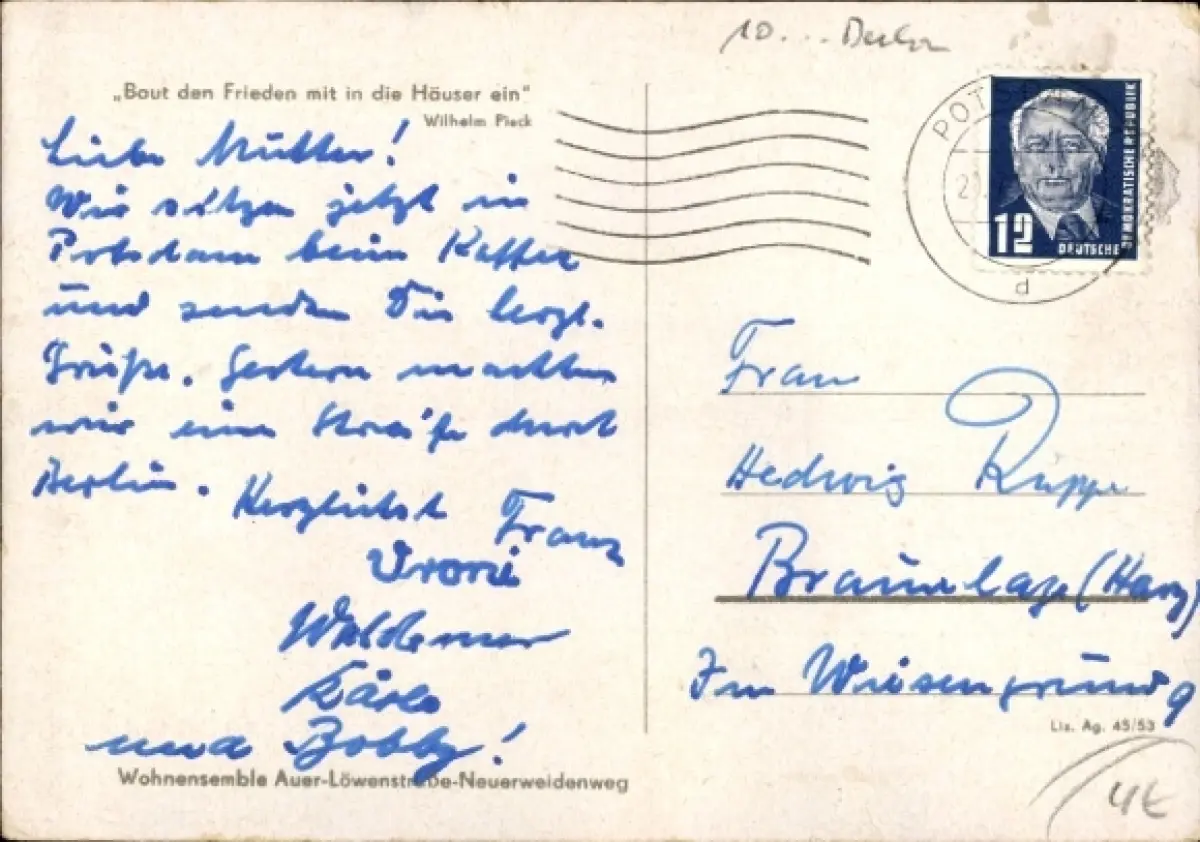 10 ... Berlin
„Baut den Frieden mit in die Häuser ein"
Wilhelm Pieck
Liebe Mutter!
Wir sitzen jetzt in
Potsdam beim Kaffee
und senden Dir herzl.
Grüße. Gestern machten
wir eine Streife durch
Berlin. Herzlichst Franz
Vroni
Waldemar
und Bobby!
Wohnensemble Auer-Löwenstraße-Neuerweidenweg
POTSDAM
d
12
DEUTSCHE
DEMOKRATISCHE REPUBLIK
Frau
Hedwig Ruppe
Braunlage (Harz)
Im Wiesengrund 9
Liz. Ag. 45/53
4€